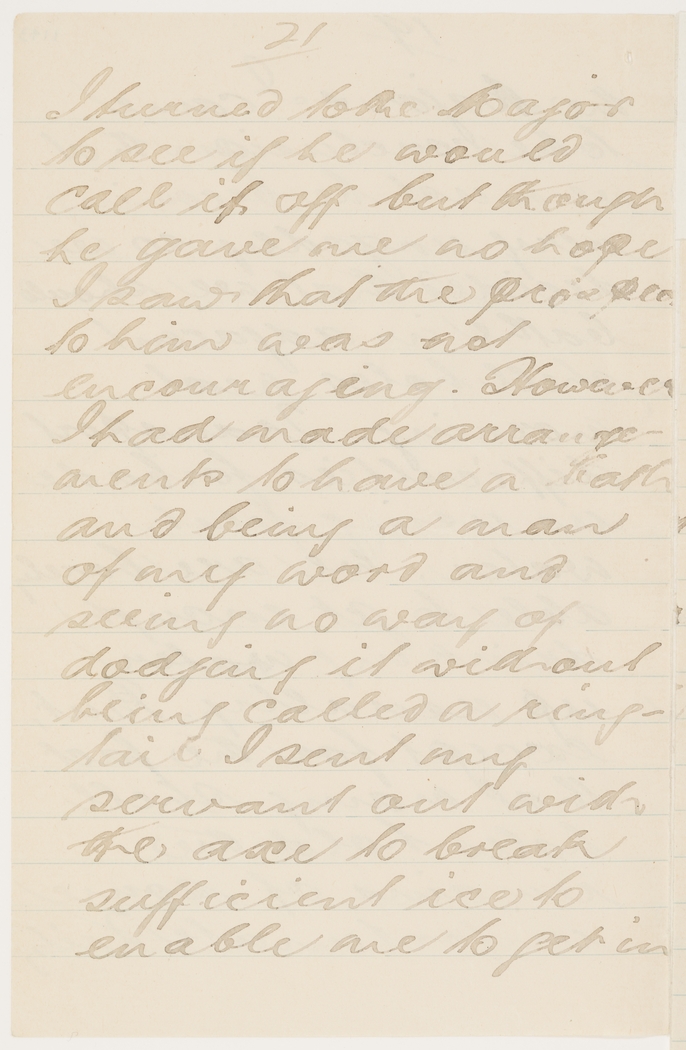 21
I turned to the Major
to see if he would
call it off but though
he gave me no hope
I saw that the prospec
to him was not
encouraging. However
I had made arrange-
ments to have a bath
and being a man
of my word and
seeing no way of
dodging it without
being called a ring-
tail I sent my
servant out with
the axe to break
sufficient ice to
enable me to get in